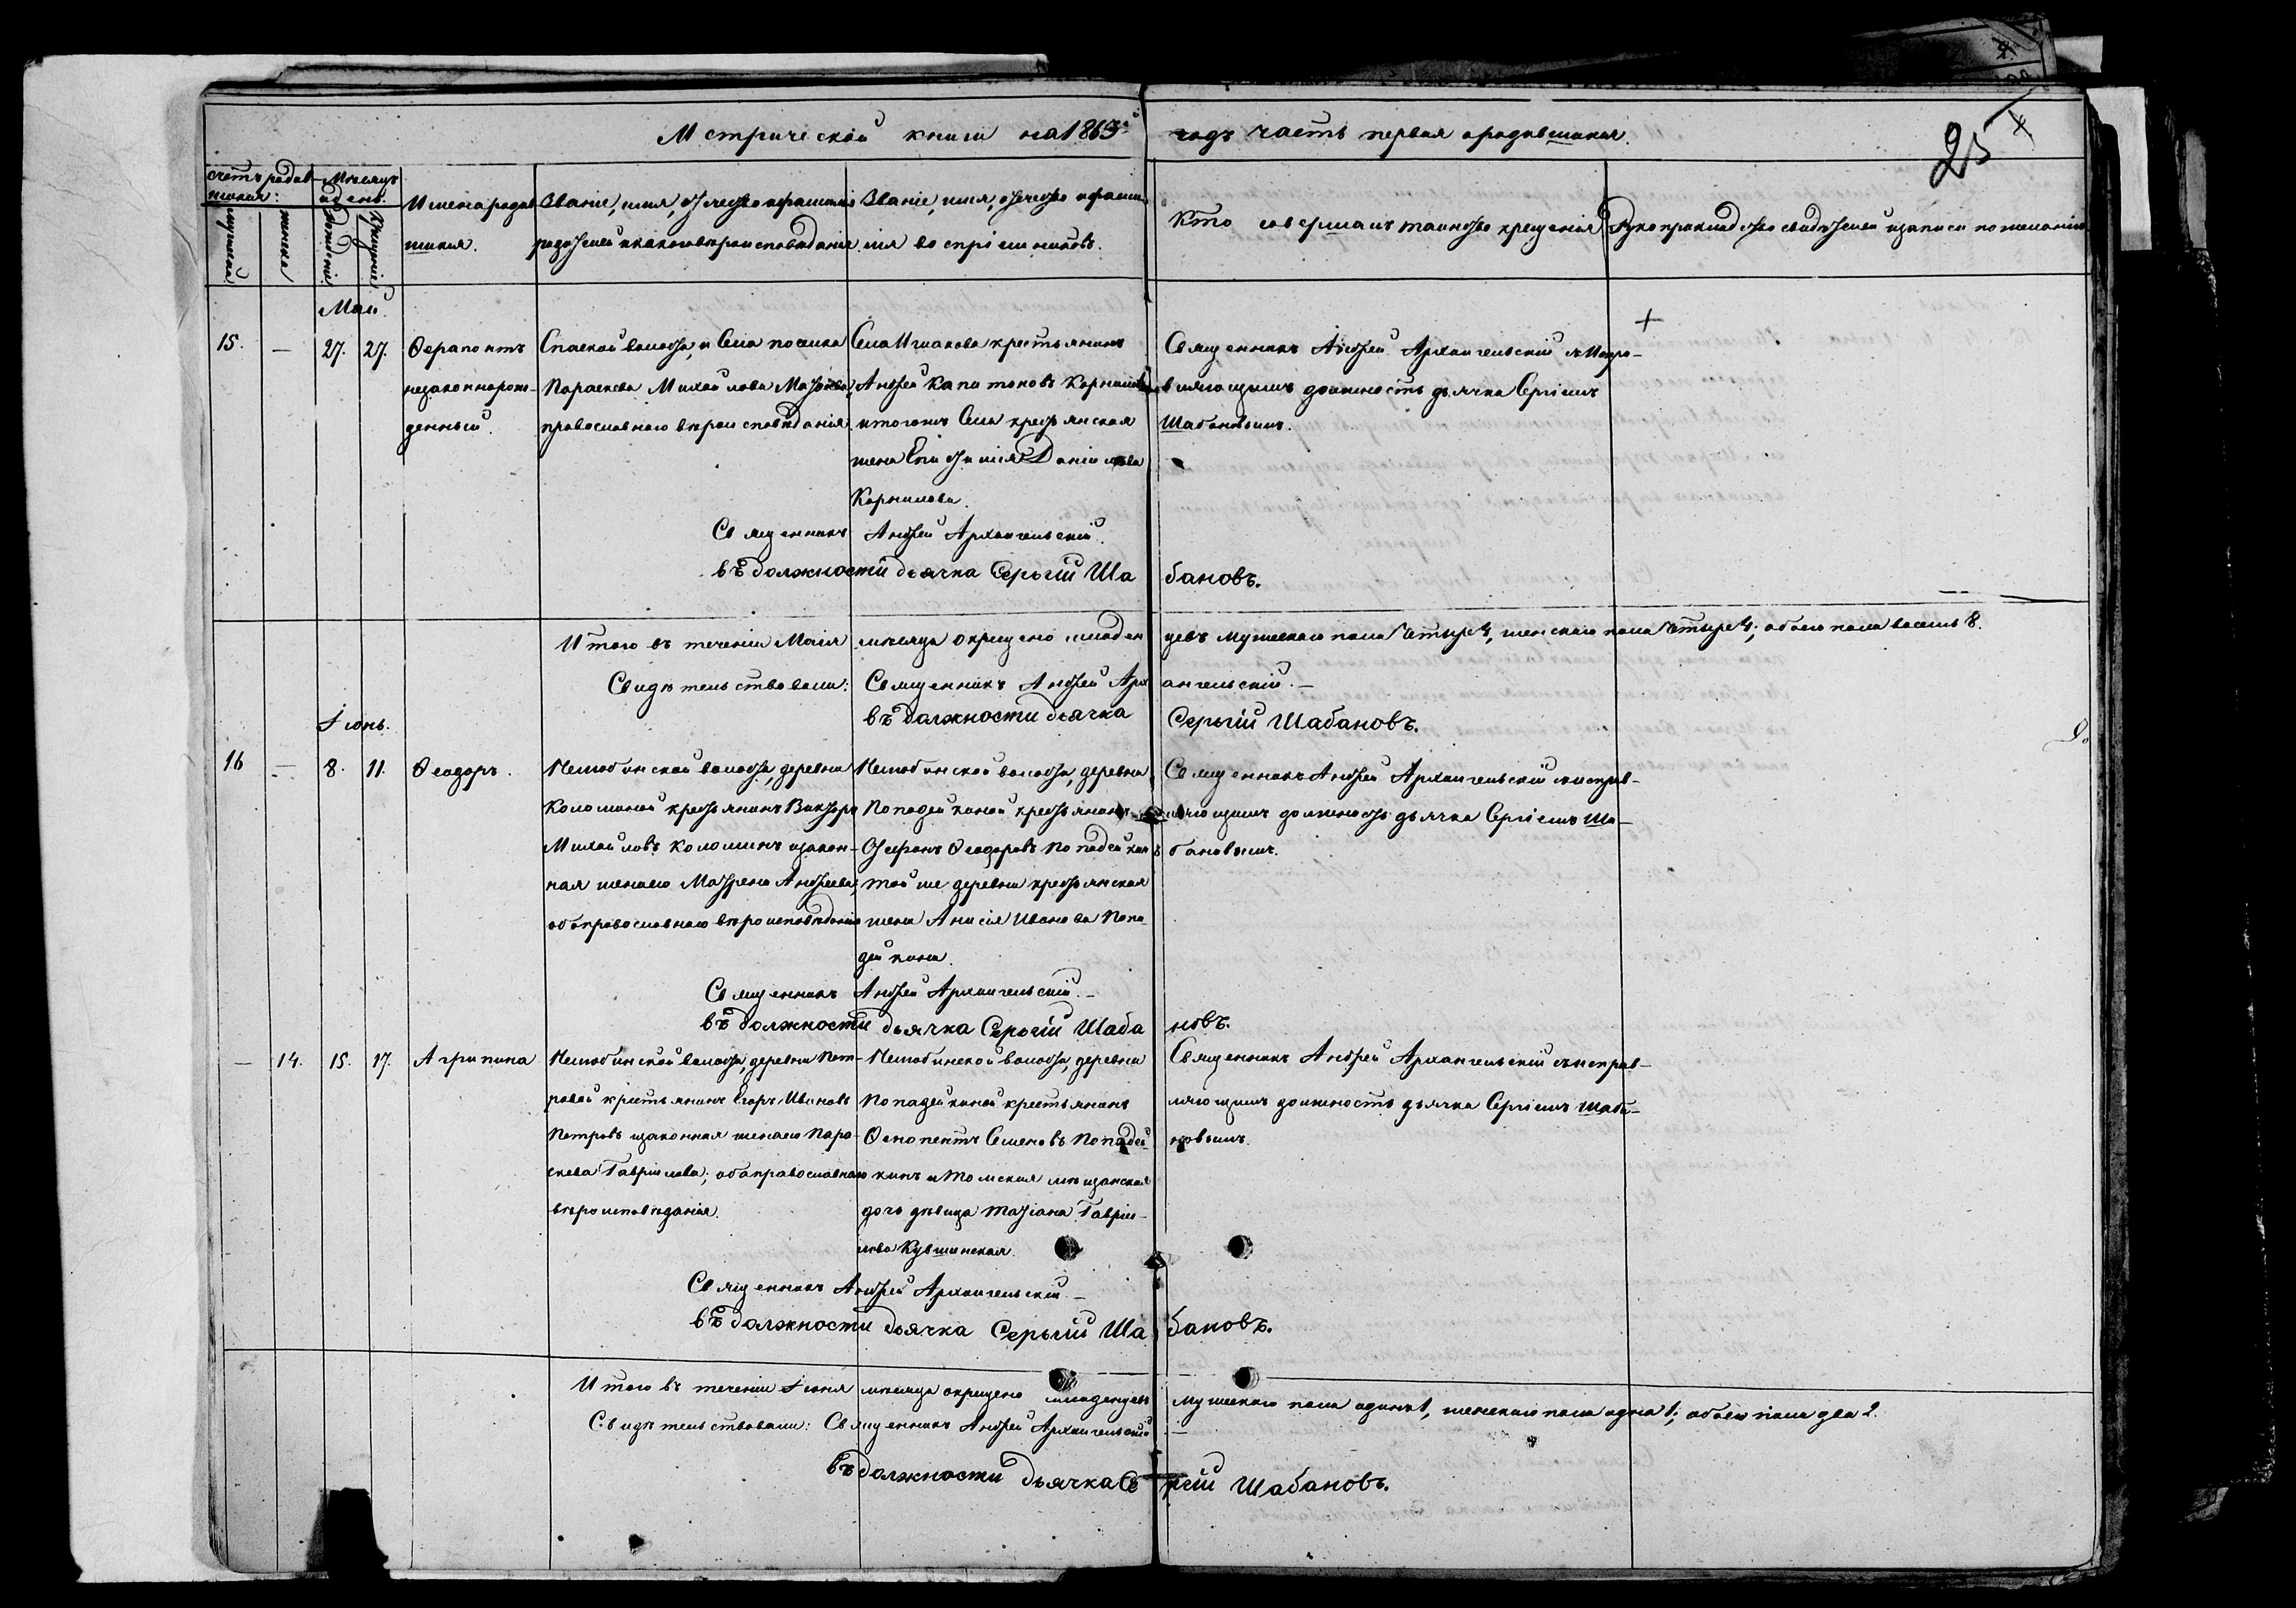 Метрической книги на 1865й годъ часть первая о родившихся.
25
Счетъ родив-
шихся:
мужеска
женска
Мѣсяцъ
и день.
Рожденія
Крещенія
Имена родив
шихся.
Званіе, имя, отчество и фамилія
родителей и какого вѣроисповѣданія.
Званіе, имя, отчество и фами
лія воспріемниковъ.
Кто совершалъ таинство крещенія
Рукоприкладство свидѣтелей записи по желанію
Май.
15.
—
27.
27.
Ѳерапонтъ
незаконнорож-
денный.
Спаской волости, и села
Параскева Михайлова
православнаго вѣроисповѣданія
Села крестьянинъ
Андрей Капитоновъ Корниловъ
и тогожъ села крестьянская
жена Данилова
Корнилова.
Священникъ Андрей Архангельскій съ испра-
вляющимъ должность дьячка Сергіемъ
Шабановымъ.
Священникъ Андрей Архангельскій.
въ должности дьячка Сергій Шабановъ.
Итого въ теченіи Маія мѣсяца окрещено младенцевъ мужескаго пола четыре 4, женскаго пола четыре 4; обоего пола восемь 8.
Свидѣтельствовали: Священникъ Андрей Архангельскій.—
въ должности дьячка Сергій Шабановъ.
Іюнь.
16
—
8.
11.
Ѳеодоръ.
Нелюбинской волости, деревни
Коломиной крестьянинъ Викторъ
Михайловъ Коломинъ и закон-
ная жена его Матрена Андреева;
оба православнаго вѣроисповѣданія
Нелюбинской волости, деревни
Попадейкиной крестьянинъ
Ѳеодоровъ Попадейкинъ
той же деревни крестьянская
жена Анисія Иванова Попа-
дейкина.
Священникъ Андрей Архангельскій съ исправ-
ляющимъ должность дьячка Сергіемъ Ша-
бановымъ.
Священникъ Андрей Архангельскій.—
въ должности дьячка Сергій Шабановъ.
—
14.
15.
17.
Агрипина
Нелюбинской волости, деревни Пет-
ровой крестьянинъ Егоръ Ивановъ
Петровъ и законная жена его Пара-
скева Гаврилова; оба православнаго
вѣроисповѣданія.
Нелюбинской волости, деревни
Попадейкиной крестьянинъ
Ѳеопентъ Семеновъ Попадей-
кинъ и Томская мѣщанская
дочь дѣвица Татіана Гаврі-
лова Кувшинская.
Священникъ Андрей Архангельскій съ исправ-
ляющимъ должность дьячка Сергіемъ Шаба-
новымъ.
Священникъ Андрей Архангельскій.—
въ должности дьячка Сергій Шабановъ.
Итого въ теченіи Іюня мѣсяца окрещено младенцевъ мужескаго пола одинъ 1, женскаго пола одна 1; обоего пола два 2.
Свидѣтельствовали: Священникъ Андрей Архангельскій—
въ должности дьячка Сергій Шабановъ.